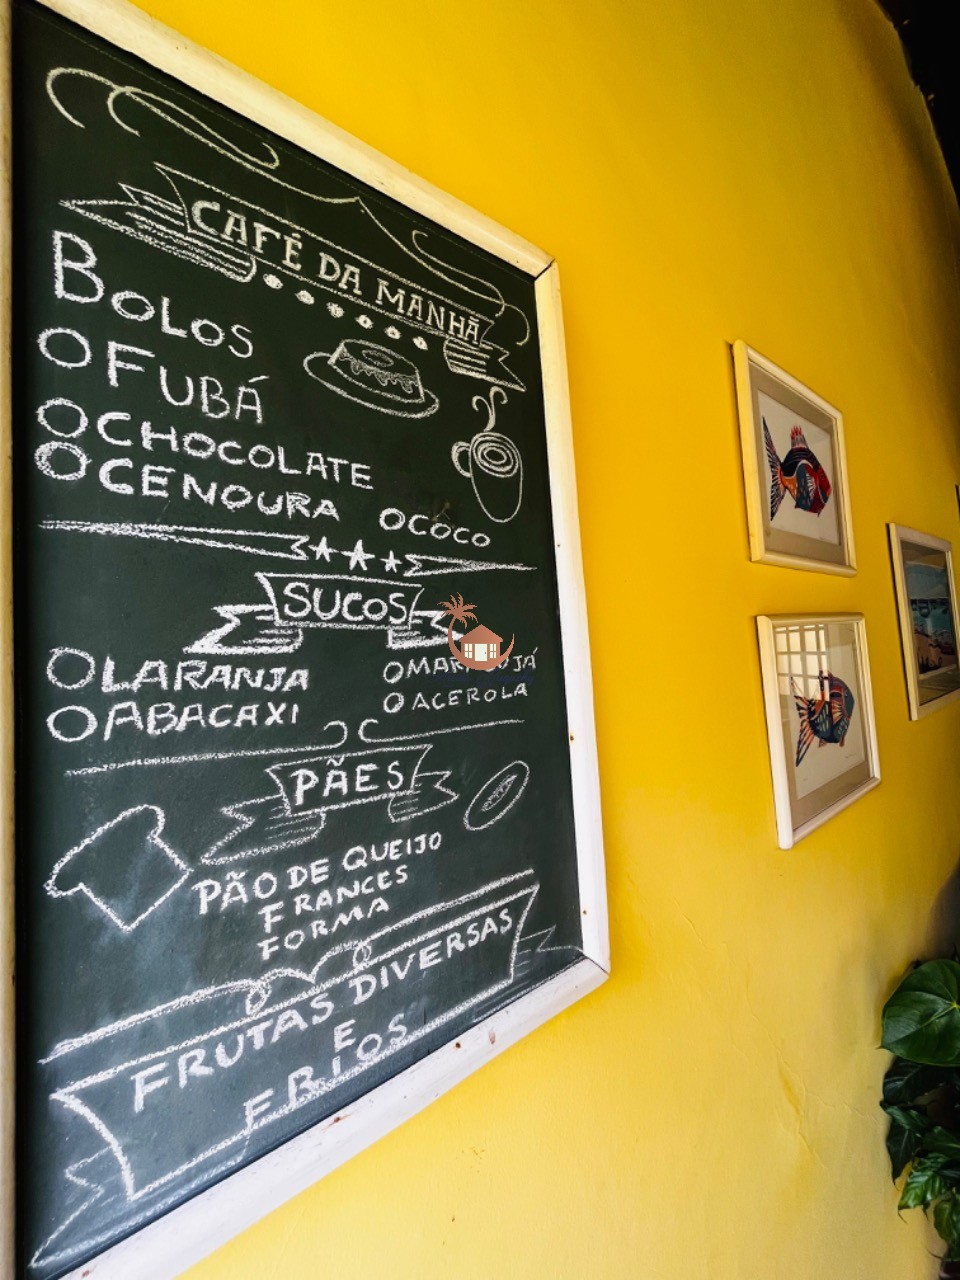 CAFÉ DA MANHÃ
BOLOS
O FUBÁ
O CHOCOLATE
O CENOURA O COCO
SUCOS
O LARANJA O MARACUJÁ
O ABACAXI O ACEROLA
PÃES
PÃO DE QUEIJO
FRANCES
FORMA
FRUTAS DIVERSAS
E
FRIOS